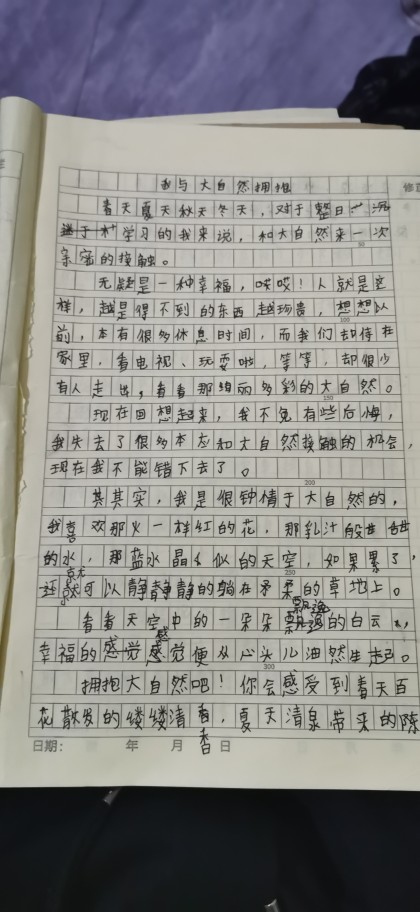 我与大自然拥抱
春天夏天秋天冬天，对于整日沉
迷于学习的我来说，和大自然来一次
亲密的接触。
无疑是一种幸福，哎哎！人就是这
样，越是得不到的东西越珍贵，想想以
前，本有很多休息时间，而我们却待在
家里，看电视、玩耍啦，等等，却很少
有人走出，看看那绚丽多彩的大自然。
现在回想起来，我不免有些后悔，
我失去了很多本应和大自然接触的机会，
现在我不能错下去了。
其其实，我是很钟情于大自然的，
我喜欢那火一样红的花，那乳汁般甜
的水，那蓝水晶似的天空，如果累了，
还就可以静静静的躺在柔的草地上。
看看天空中的一朵朵飘逸的白云，
幸福的感觉便从心头儿油然生起。
拥抱大自然吧！你会感受到春天百
花散发的缕缕清香，夏天清泉带来的陈
日期： 年 月 日